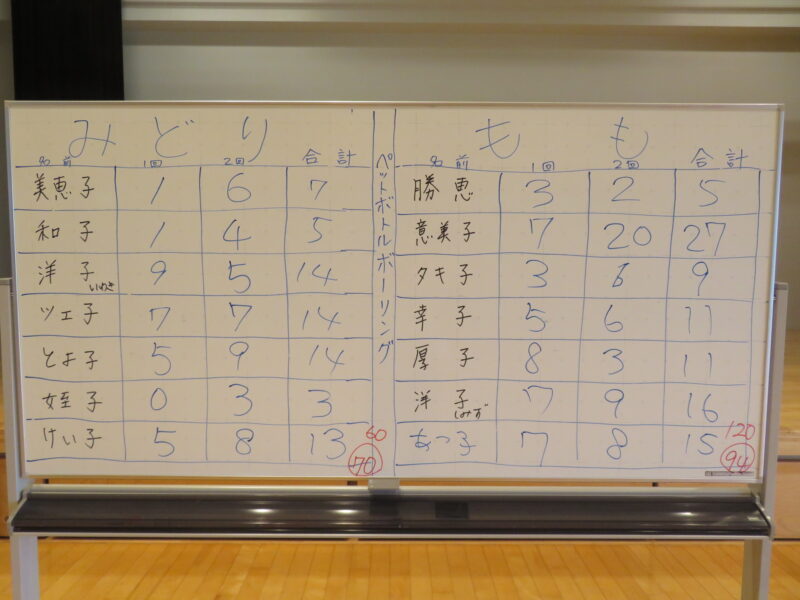 みどり
名前 1回 2回 合計
美恵子 1 6 7
和子 1 4 5
洋子 いわさ 9 5 14
ツエ子 7 7 14
とよ子 5 9 14
姪子 0 3 3
けい子 5 8 13
60
70
ペットボトルボーリング
もも
名前 1回 2回 合計
勝恵 3 2 5
意美子 7 20 27
タキ子 3 6 9
幸子 5 6 11
厚子 8 3 11
洋子 しみず 7 9 16
あつ子 7 8 15
120
94